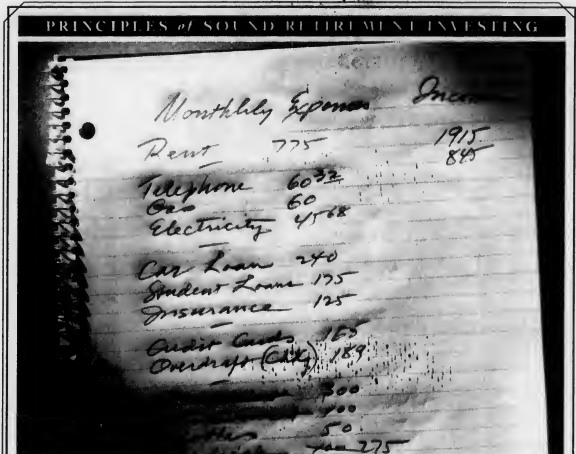 PRINCIPLES of SOUND RETIREMENT INVESTING
Monthlily Expenses
Rent 775 1915
845
Telephone 60 32
Gas 60
Electricity 45 68
Car Loan 240
Student Loans 175
Insurance 125
Credit Cards 165
Overdraft (Chkg) 189
300
400
50
275